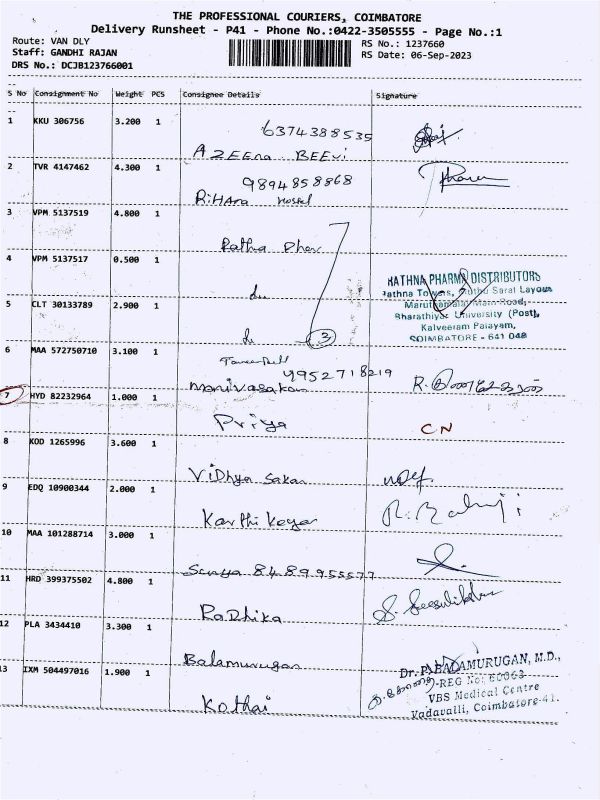 THE PROFESSIONAL COURIERS, COIMBATORE
Delivery Runsheet - P41 - Phone No.:0422-3505555 - Page No.:1
Route: VAN DLY
Staff: GANDHI RAJAN
DRS No.: DCJB123766001
RS No.: 1237660
RS Date: 06-Sep-2023
S No Consignment No Weight PCS Consignee Details Signature
1 KKU 306756 3.200 1
6374388535
AZEENA BEEVI
2 TVR 4147462 4.300 1
9894858868
RiHana Hostel
3 VPM 5137519 4.800 1
Rathna
4 VPM 5137517 0.500 1
du
RATHNA PHARMA DISTRIBUTORS
Rathna Towers, Muthu Saral Layout
Maruthamalai Main Road,
Bharathiyar University (Post),
Kalveeram Palayam,
COIMBATORE - 641 046
5 CLT 30133789 2.900 1
3
6 MAA 572750710 3.100 1
9952718219
Manivasakan
7 HYD 82232964 1.000 1
Priya CN
8 KOD 1265996 3.600 1
Vidhya Sakar
9 EDQ 10900344 2.000 1
Karthikeyan
10 MAA 101288714 3.000 1
Surya 8489955577
11 HRD 399375502 4.800 1
Radhika
12 PLA 3434410 3.300 1
Balamurugan
Dr. P. BALAMURUGAN, M.D.,
REG No: 60063
VBS Medical Centre
Vadavalli, Coimbatore-41.
13 IXM 504497016 1.900 1
Kothai